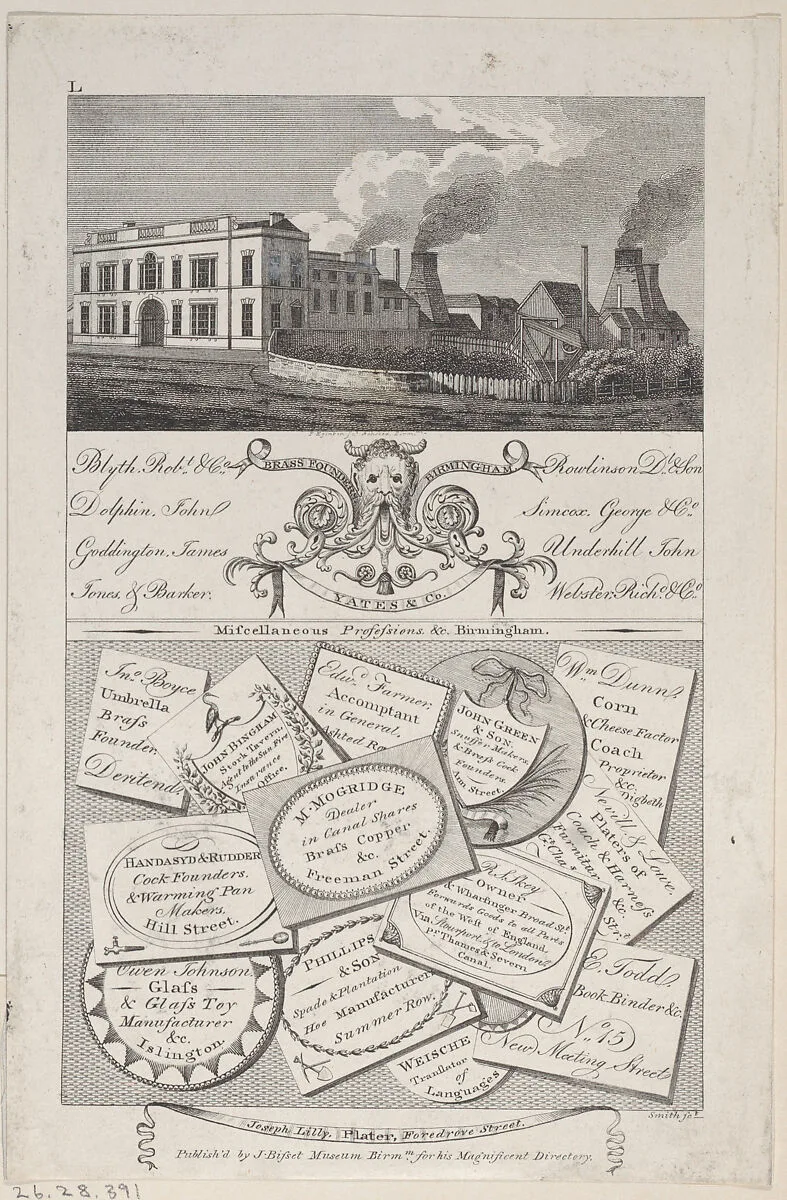 L
BRASS FOUNDERS BIRMINGHAM
Blyth. Robt. & Co.
Dolphin. John
Goddington. James
Jones. & Barker.
Rowlinson Dl. & Son
Simcox. George & Co.
Underhill John
Webster. Richd. & Co.
YATES & Co.
Miſcellaneous Profeſsions. &c. Birmingham.
Jno. Boyce
Umbrella
Braſs
Founder.
Deritend.
JOHN BINGHAM
Stork Tavern.
Agent to the Sun Fire
Insurance
Office.
Edwd. Farmer.
Accomptant
in General.
Ashted
JOHN GREEN
& SON.
Snuffer Makers.
& Braſs Cock
Founders.
Ann Street.
Wm. Dunn.
Corn
& Cheese Factor
Coach
Proprietor
&c.
Digbeth
M. MOGRIDGE
Dealer
in Canal Shares
Braſs Copper.
&c.
Freeman Street.
Nevill & Lowe.
Platers of
Coach & Harneſs
Furniture
&c.
Gt. Chas. Strt.
HANDASYD & RUDDER
Cock Founders.
& Warming Pan
Makers.
Hill Street.
R. Skey
Owner
& Wharfinger Broad St.
Forwards Goods to all Parts
of the West of England.
Via. Stourport & to London
pr. Thames & Severn
Canal.
Owen Johnson
Glaſs
& Glaſs Toy
Manufacturer
&c.
Islington.
PHILLIPS
& SON
Spade & Plantation
Hoe Manufacturer
Summer Row.
E. Todd.
Book Binder &c.
No. 15
New Meeting Street
WEISCHE
Translator
of
Languages
Smith sct.
Joseph Lilly. Plater, Foredrove Street.
Publish'd by J. Biſset Museum Birmm. for his Magnificent Directory.
26.28.391